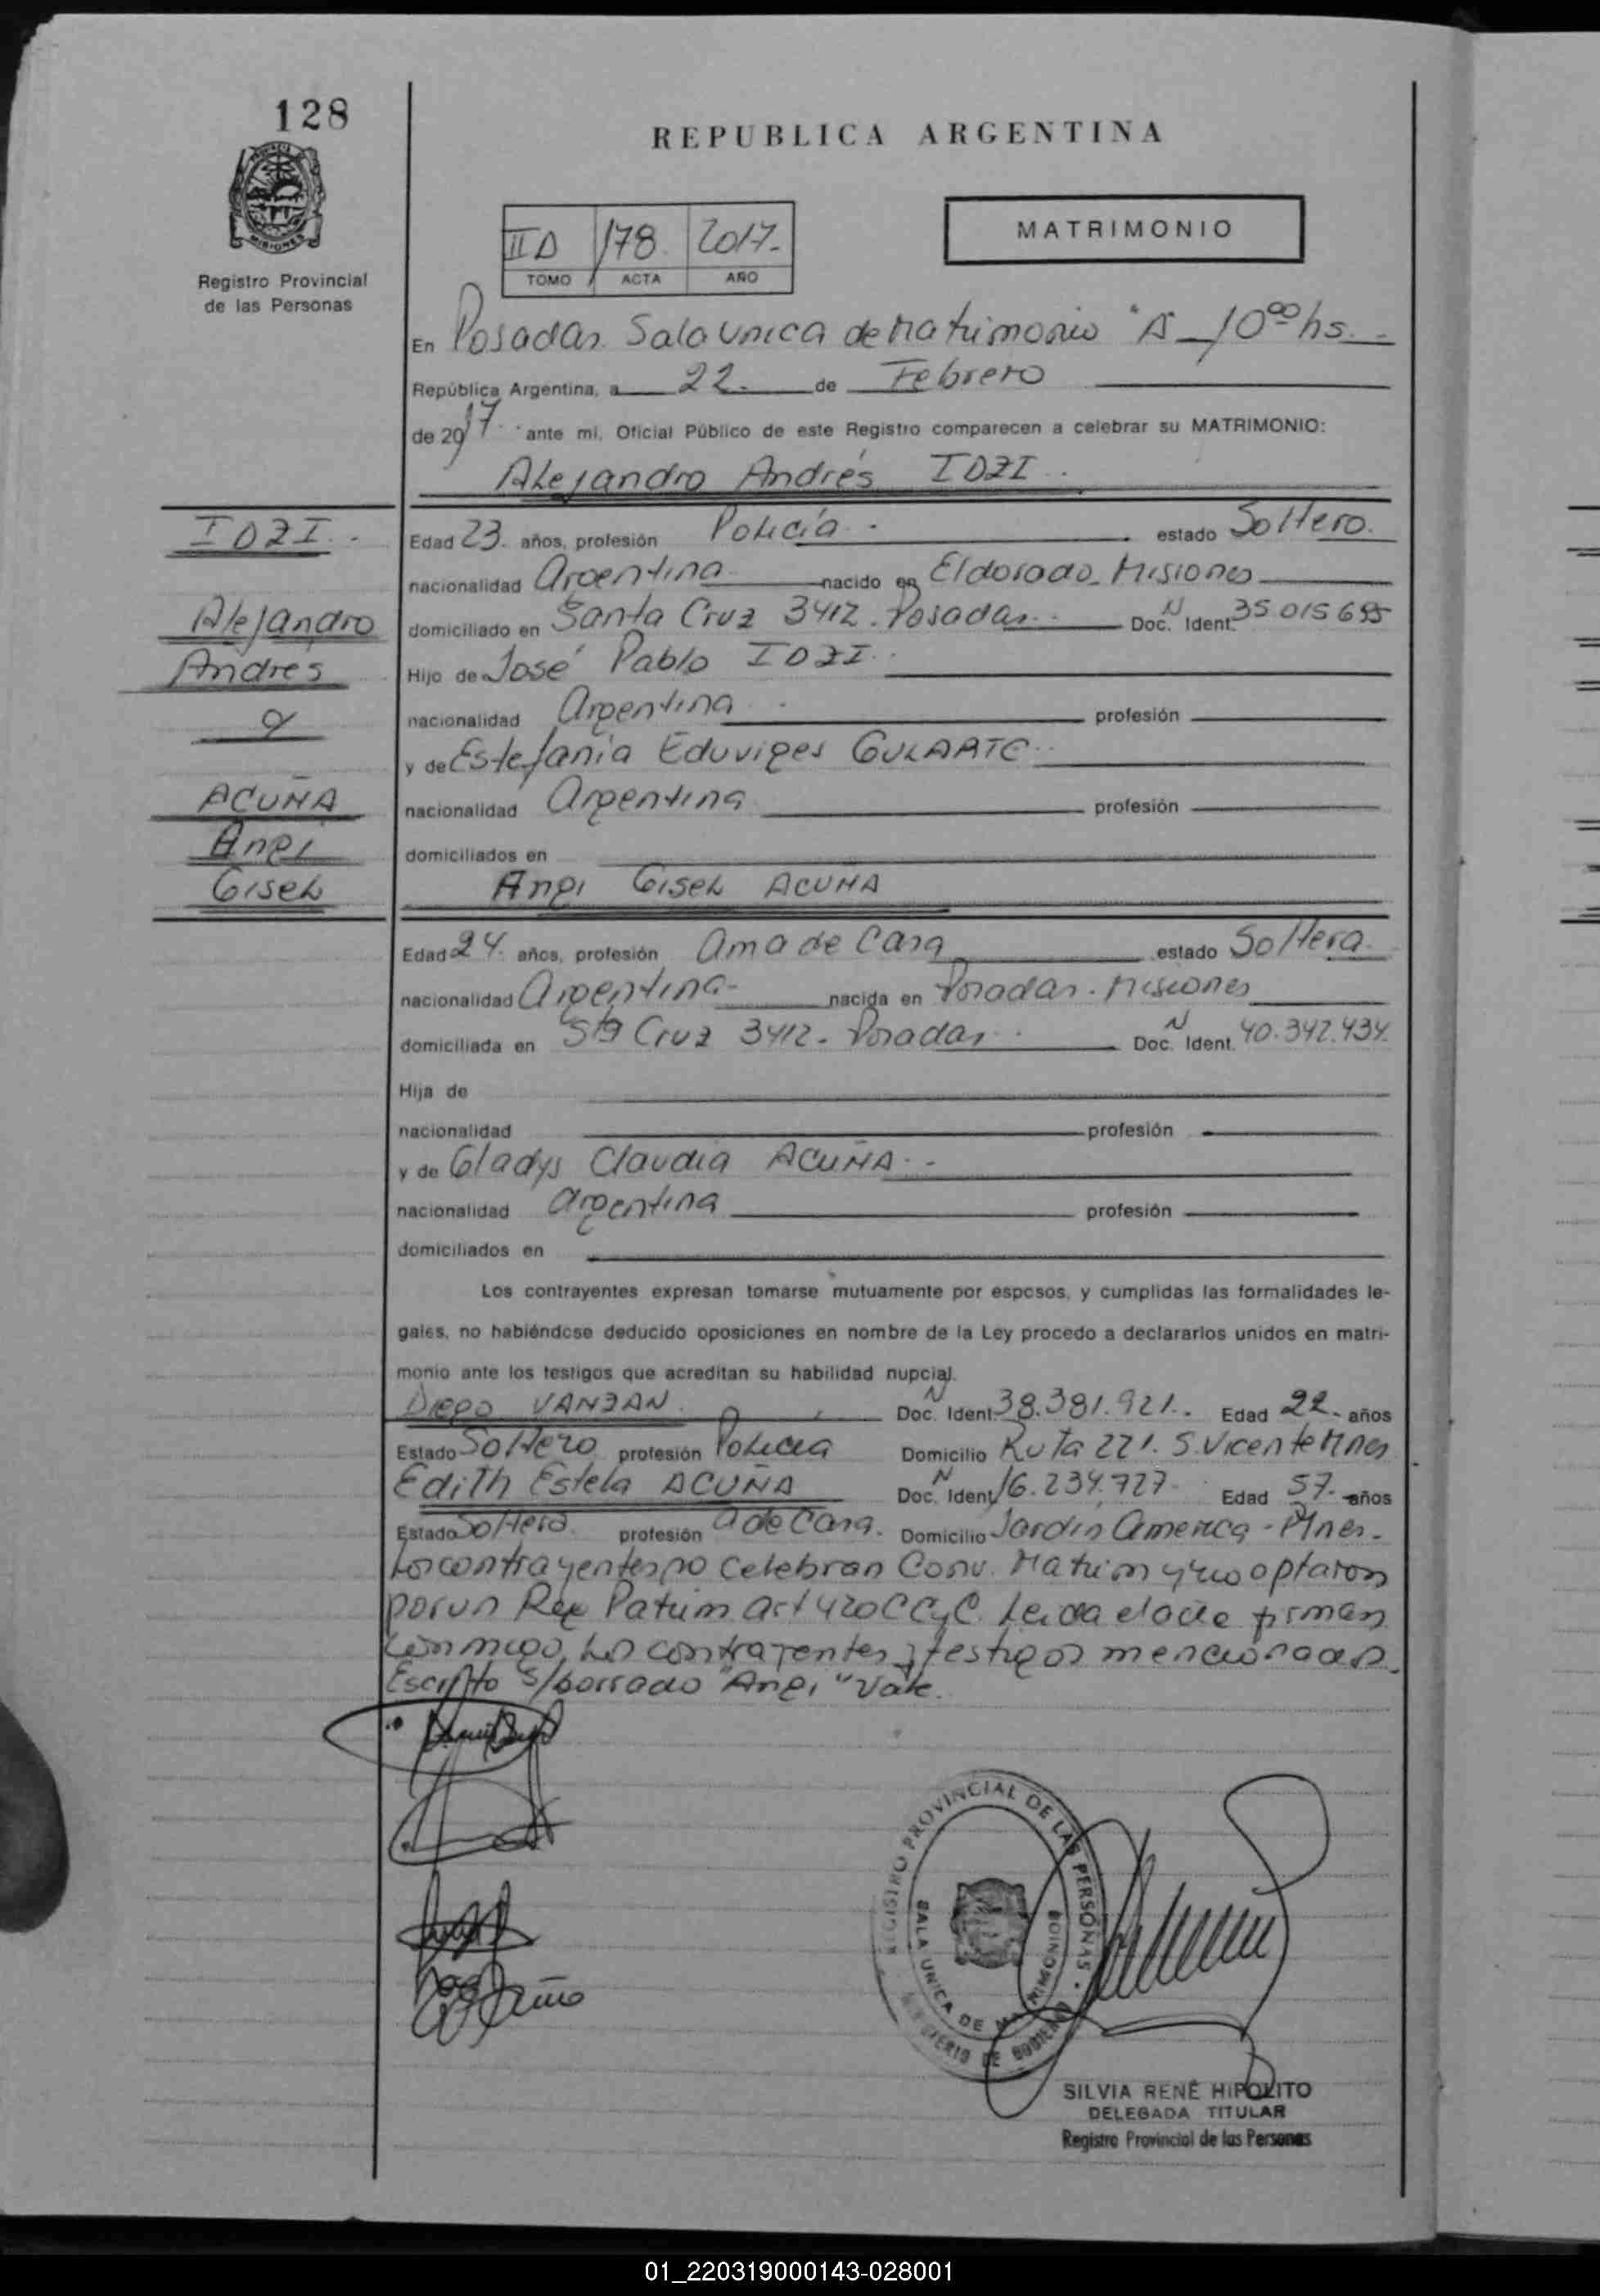 128
REPUBLICA ARGENTINA
MISIONES
Registro Provincial
de las Personas
II D 178 2017.-
TOMO ACTA AÑO
MATRIMONIO
En Posadas Sala Unica de Matrimonio "A" - 10ºº hs.-
República Argentina, a 22. de Febrero
de 2017. ante mi, Oficial Público de este Registro comparecen a celebrar su MATRIMONIO:
Alejandro Andrés IDZI.
IDZI.-
Alejandro
Andres
y
ACUÑA
Angi
Gisel
Edad 23. años, profesión Policía.- estado Soltero.
nacionalidad Argentina nacido en Eldorado Misiones
domiciliado en Santa Cruz 3412. Posadas.- Doc. N Ident. 35 015 695
Hijo de José Pablo IDZI.
nacionalidad Argentina profesión
y de Estefania Eduviges GULARTE.
nacionalidad Argentina profesión
domiciliados en
Angi Gisel ACUÑA
Edad 24. años, profesión Ama de Casa estado Soltera.
nacionalidad Argentina- nacida en Posadas. Misiones
domiciliada en Sta Cruz 3412. Posadas. Doc. N Ident. 40.342.434.
Hija de
nacionalidad profesión
y de Gladys Claudia ACUÑA.-
nacionalidad Argentina profesión
domiciliados en
Los contrayentes expresan tomarse mutuamente por esposos, y cumplidas las formalidades le-
gales, no habiéndose deducido oposiciones en nombre de la Ley procedo a declararlos unidos en matri-
monio ante los testigos que acreditan su habilidad nupcial.
Diego VANZAN. Doc. N Ident. 38.381.921.. Edad 22. años
Estado Soltero profesión Policia Domicilio Ruta 221. S. Vicente Mnes
Edith Estela ACUÑA Doc. N Ident. 16.234.727- Edad 57. años
Estado Soltera. profesión A de Casa. Domicilio Jardin America - Mnes.
Los contrayentes no Celebran Conv. Matrim y no optaron
por un Reg Patrim art 420 CCyC. Leida el acta firman
conmigo, los contrayentes y testigos mencionados.
Escrito s/borrado "Angi" Vale.
REGISTRO PROVINCIAL DE LAS PERSONAS
SALA UNICA DE MATRIMONIOS
MINISTERIO DE GOBIERNO
SILVIA RENÉ HIPOLITO
DELEGADA TITULAR
Registro Provincial de las Personas
01_220319000143-028001